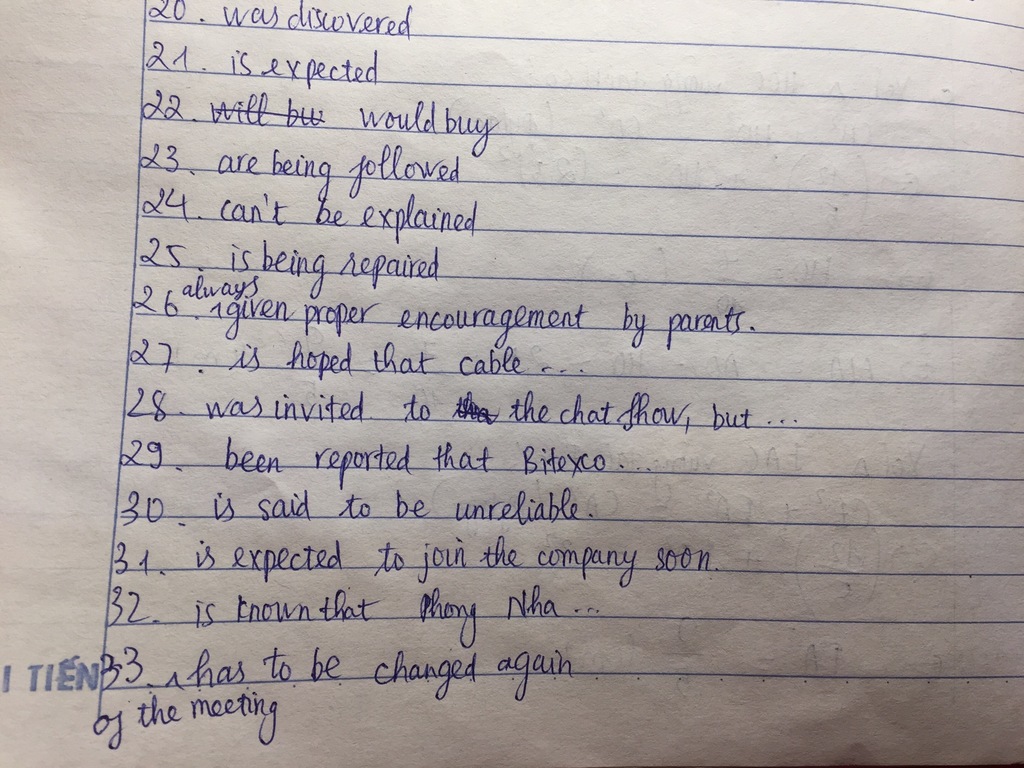 20. was discovered
21. is expected
22. would buy
23. are being followed
24. can't be explained
25. is being repaired
always
26. given proper encouragement by parents.
27. is hoped that cable ...
28. was invited to the chat show, but ...
29. been reported that Bitexco ...
30. is said to be unreliable.
31. is expected to join the company soon.
32. is known that Phong Nha ...
I TIẾN
33. has to be changed again
of the meeting